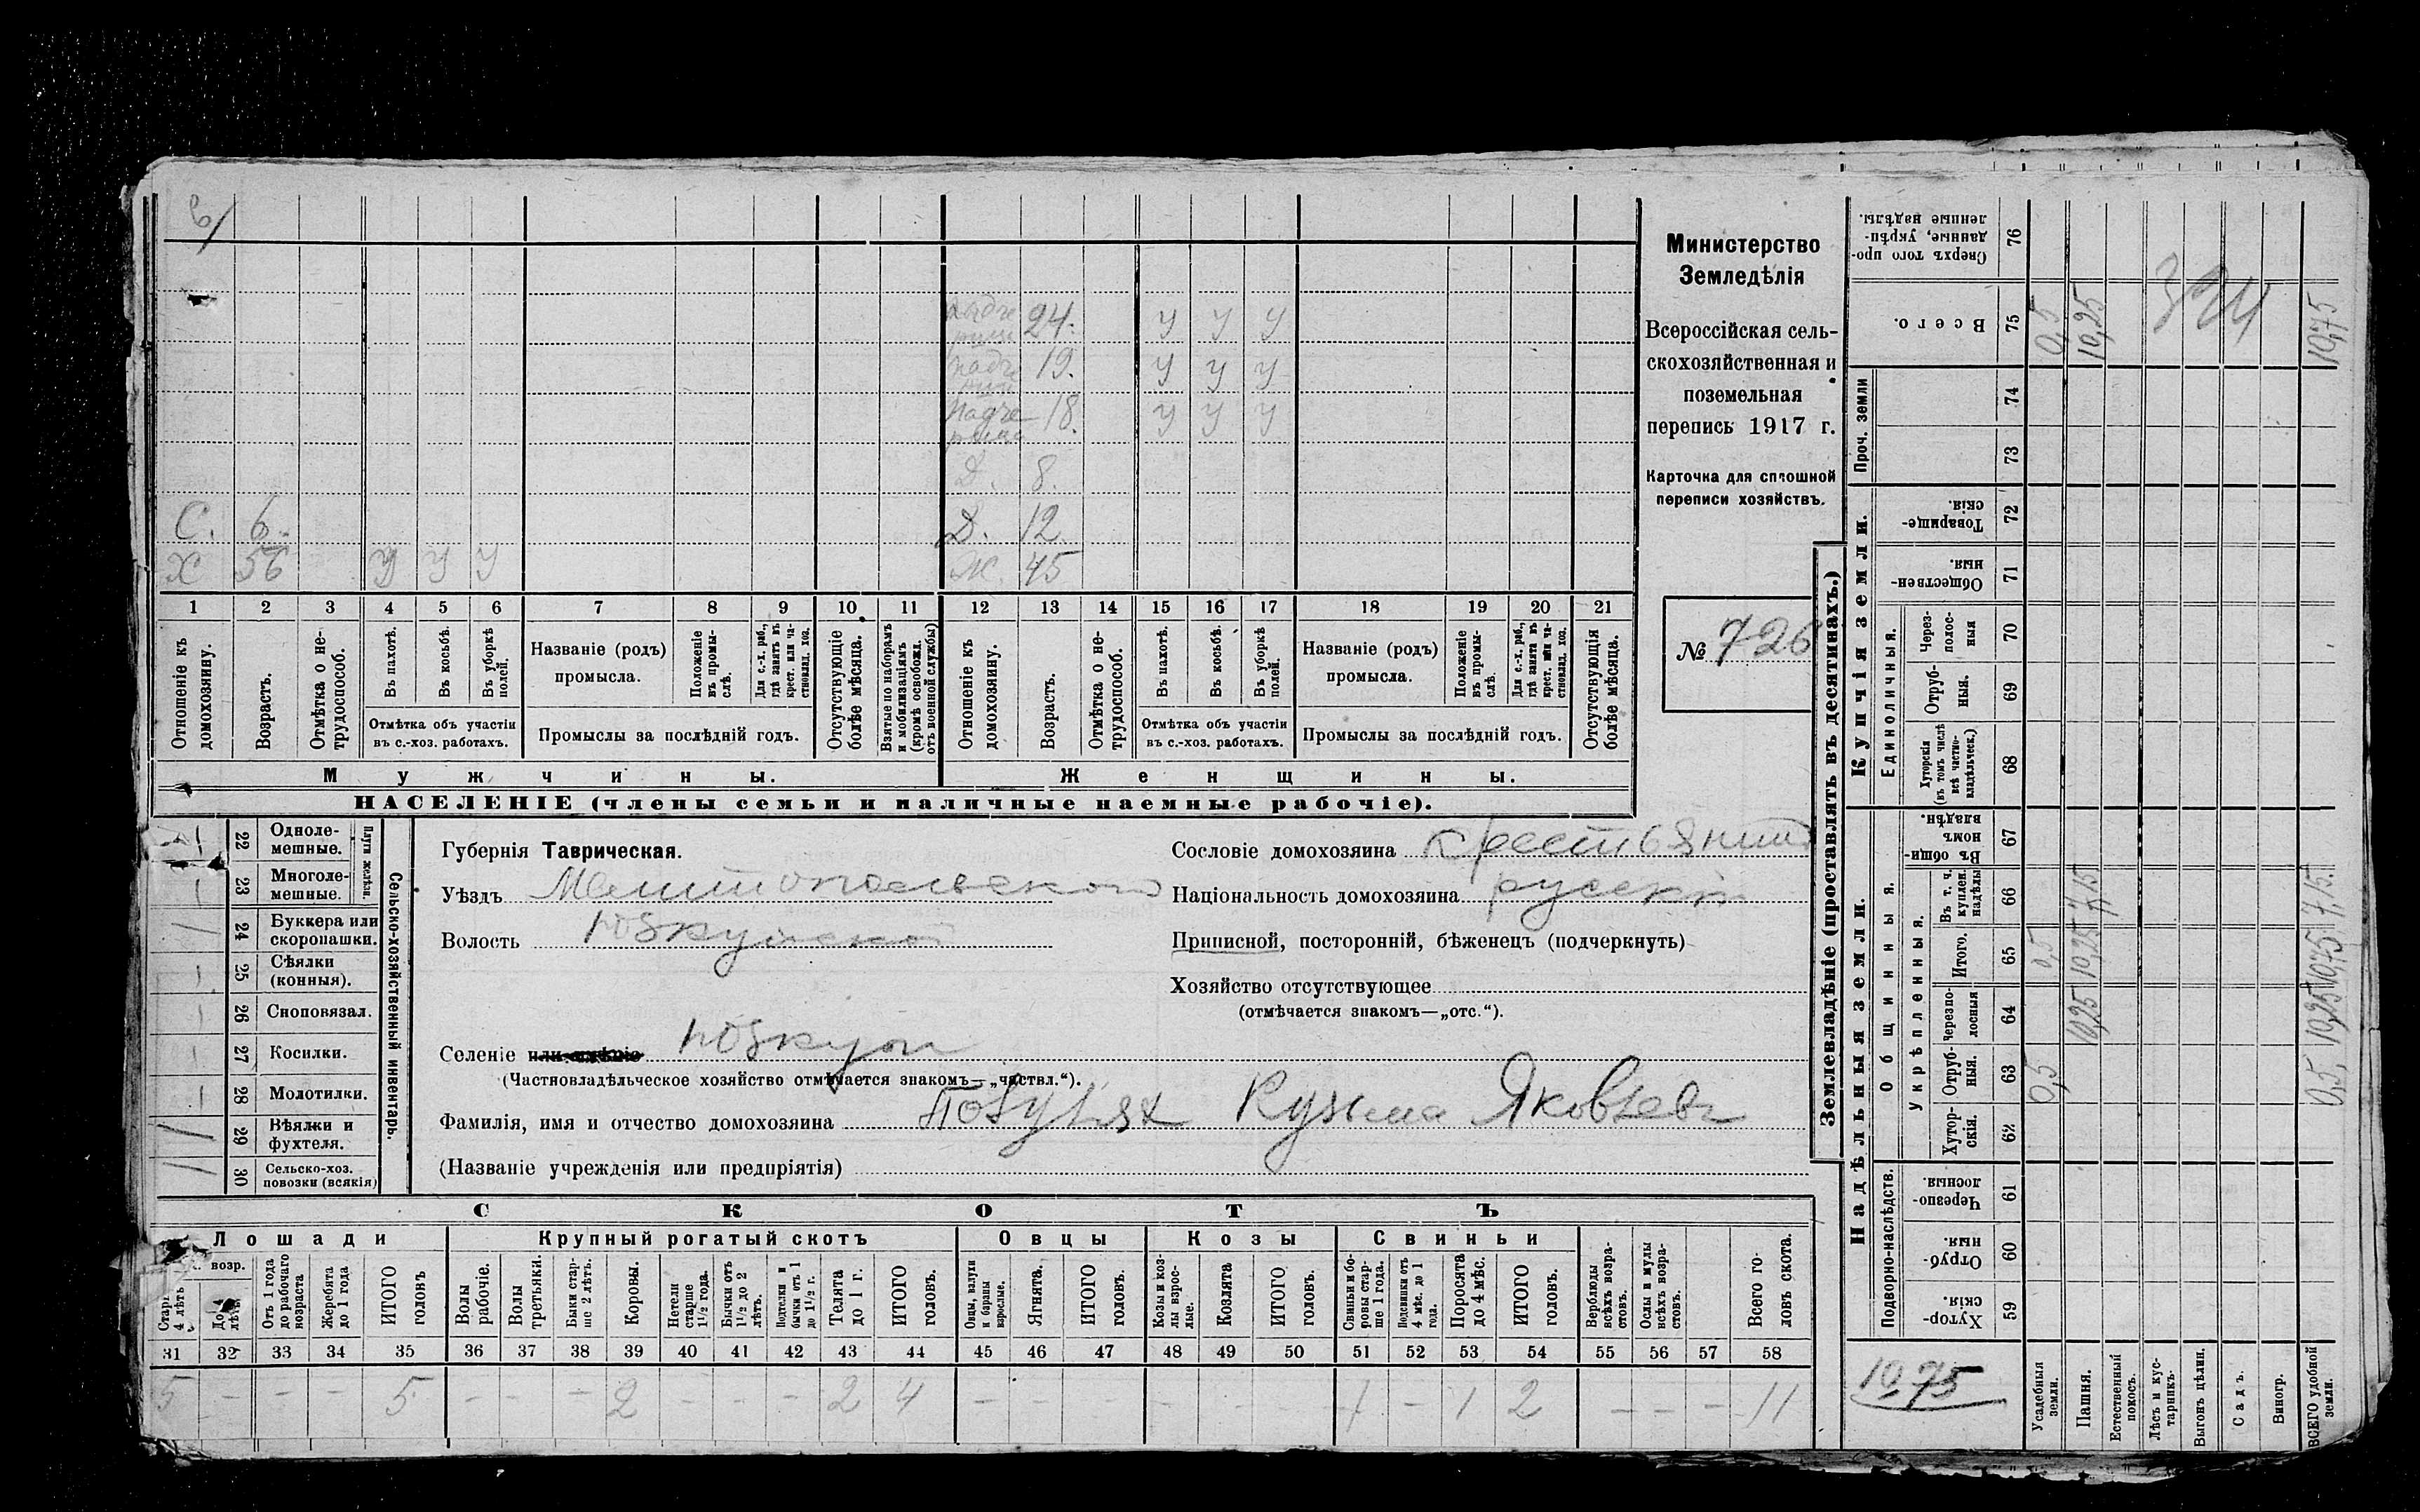 падче
рица 24. У У У
падче
рица 19. У У У
падче
рица 18. У У У
Д. 8.
С. 6. Д. 12.
Х 56 У У У Ж. 45
1 2 3 4 5 6 7 8 9 10 11 12 13 14 15 16 17 18 19 20 21
Отношеніе къ домохозяину.
Возрастъ.
Отмѣтка о не-трудоспособ.
Въ пахотѣ.
Въ косьбѣ.
Въ уборкѣ полей.
Отмѣтка объ участіи
въ с.-хоз. работахъ.
Названіе (родъ)
промысла.
Положеніе въ промы-слѣ.
Для с.-х. раб., гдѣ занятъ въ крест. или ча-стновлад. хоз.
Промыслы за послѣдній годъ.
Отсутствующіе болѣе мѣсяца.
Взятые по наборамъ и мобилизаціямъ (кромѣ освобожд. отъ военной службы)
Отношеніе къ домохозяину.
Возрастъ.
Отмѣтка о не-трудоспособ.
Въ пахотѣ.
Въ косьбѣ.
Въ уборкѣ полей.
Отмѣтка объ участіи
въ с.-хоз. работахъ.
Названіе (родъ)
промысла.
Положеніе въ промы-слѣ.
Для с.-х. раб., гдѣ занята въ крест. или ча-стновлад. хоз.
Промыслы за послѣдній годъ.
Отсутствующія болѣе мѣсяца.
Мужчины. Женщины.
НАСЕЛЕНІЕ (члены семьи и наличные наемные рабочіе).
Министерство
Земледѣлія
Всероссійская сель-
скохозяйственная и
поземельная
перепись 1917 г.
Карточка для сплошной
переписи хозяйствъ.
№ 726
Сельско-хозяйственный инвентарь.
Плуги желѣзн.
22 Одноле-мешные. 1
23 Многоле-мешные. 1
24 Буккера или скоропашки. /
25 Сѣялки (конныя). 1
26 Сноповязал. 1
27 Косилки. 1
28 Молотилки. 1
29 Вѣялки и фухтеля. /
30 Сельско-хоз. повозки (всякія) /
Губернія Таврическая.
Уѣздъ Мелитопольскій
Волость Юзкуйская
Селеніе или имѣніе Юзкуи
(Частновладѣльческое хозяйство отмѣчается знакомъ—„частвл.“).
Сословіе домохозяина крестьянин
Національность домохозяина русскій
Приписной, посторонній, бѣженецъ (подчеркнуть)
Хозяйство отсутствующее
(отмѣчается знакомъ—„отс.“).
Фамилія, имя и отчество домохозяина Кузьма Яковлевъ
(Названіе учрежденія или предпріятія)
СКОТЪ
Лошади Крупный рогатый скотъ Овцы Козы Свиньи
возр.
Отъ 1 года до рабочаго возраста
Жеребята до 1 года
ИТОГО головъ
Волы рабочіе.
Волы третьяки.
Быки стар-ше 2 лѣтъ.
Коровы.
Нетели старше 1½ года.
Бычки отъ 1½ до 2 лѣтъ.
Подтелки и бычки отъ 1 до 1½ г.
Телята до 1 г.
ИТОГО головъ.
Овцы, валухи и бараны взрослые.
Ягнята.
ИТОГО головъ.
Козы и коз-лы взрос-лые.
Козлята
ИТОГО головъ.
Свиньи и бо-ровы стар-ше 1 года.
Подсвинки отъ 4 мѣс. до 1 года.
Поросята до 4 мѣс.
ИТОГО головъ.
Верблюды всѣхъ возра-стовъ.
Ослы и мулы всѣхъ возра-стовъ.
Всего го-ловъ скота.
31 32 33 34 35 36 37 38 39 40 41 42 43 44 45 46 47 48 49 50 51 52 53 54 55 56 57 58
5 – – – 5 – – – 2 – – – 2 4 – – – – – 1 – 1 2 – – – 11
Землевладѣніе (проставлять въ десятинахъ.)
Надѣльныя земли. Купчія земли. Проч. земли
Подворно-наслѣдств. Общинныя. Укрѣпленныя. Единоличныя.
59 Хутор-скія
60 Отруб-ныя.
61 Черезпо-лосныя.
62 Хутор-скія.
63 Отруб-ныя. 0,5 0,5
64 Черезпо-лосныя 10,25 10,25
65 Итого. 0,5 10,25 10,75
66 Въ т. ч. куплен. надѣлы 7,15 7,15
67 Въ общи-номъ владѣн.
68 Хуторскія (въ томъ числѣ всѣ частно-владѣльческ.)
69 Отруб-ныя.
70 Через-полос-ныя
71 Обществен-ныя.
72 Товарище-скія.
73
74
75 Всего. 0,5 10,25 10,75
76 Сверхъ того про-данные, укрѣп-ленные надѣлы.
10,75
Усадебныя земли.
Пашня.
Естественный покосъ.
Лѣсъ и кус-тарникъ.
Выгонъ цѣлин.
Садъ.
Виногр.
ВСЕГО удобной земли.